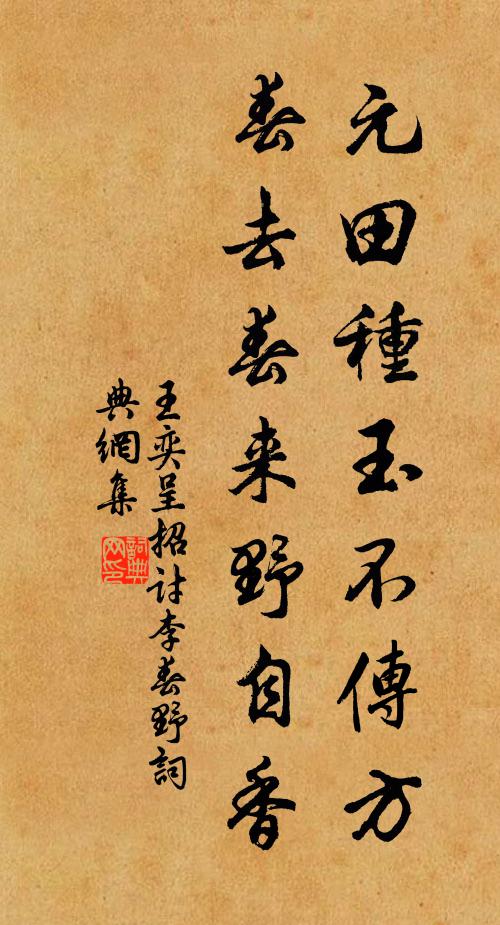 元田種玉不傳方
春去春来野自香
王奕呈招討李春野詞
典網集
詞典
网印